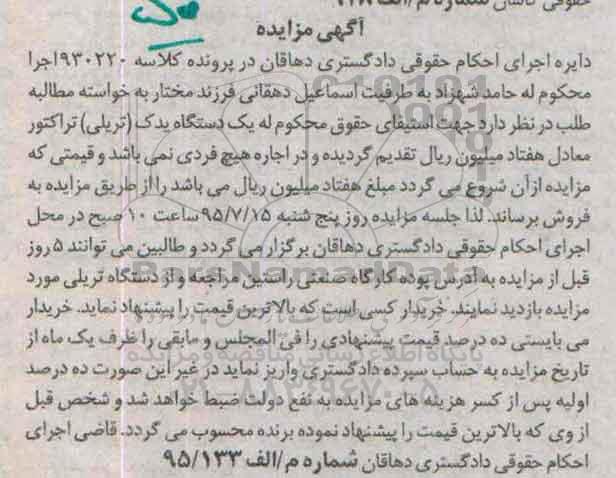 حقوقی کاشان شماره م/الف
آگهی مزایده
دایره اجرای احکام حقوقی دادگستری دهاقان در پرونده کلاسه ۹۳۰۲۲۰اجرا
محکوم له حامد شهزاد به طرفیت اسماعیل دهقانی فرزند مختار به خواسته مطالبه
طلب در نظر دارد جهت استیفای حقوق محکوم له یک دستگاه یدک (تریلی) تراکتور
معادل هفتاد میلیون ریال تقدیم گردیده و در اجاره هیچ فردی نمی باشد و قیمتی که
مزایده ازآن شروع می گردد مبلغ هفتاد میلیون ریال می باشد را از طریق مزایده به
فروش برساند. لذا جلسه مزایده روز پنج شنبه ۹۵/۷/۱۵ ساعت ۱۰ صبح در محل
اجرای احکام حقوقی دادگستری دهاقان برگزار می گردد و طالبین می توانند ۵ روز
قبل از مزایده به آدرس پوده کارگاه صنعتی راستین مراجعه و از دستگاه تریلی مورد
مزایده بازدید نمایند. خریدار کسی است که بالاترین قیمت را پیشنهاد نماید. خریدار
می بایستی ده درصد قیمت پیشنهادی را فی المجلس و مابقی را ظرف یک ماه از
تاریخ مزایده به حساب سپرده دادگستری واریز نماید در غیر این صورت ده درصد
اولیه پس از کسر هزینه های مزایده به نفع دولت ضبط خواهد شد و شخص قبل
از وی که بالاترین قیمت را پیشنهاد نموده برنده محسوب می گردد. قاضی اجرای
احکام حقوقی دادگستری دهاقان شماره م/الف ۹۵/۱۳۳
ParsNamadData
پایگاه اطلاع رسانی مناقصه و مزایده